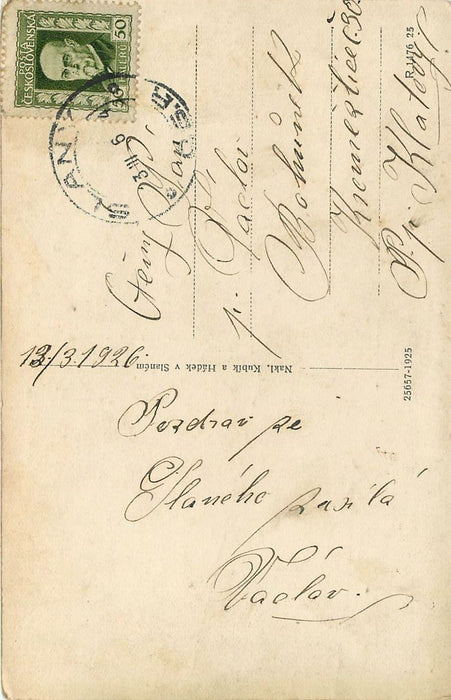 POŠTA
ČESKOSLOVENSKÁ
50
SLANÝ
13.III 26
13/3.1926.
Ctěný
Pan
p. Václav
Bohuněk
p. Klatovy
R 1476 25
Nakl. Kubík a Hádek v Slaném
25657-1925
Pozdrav ze
Slaného zasílá
Václav.